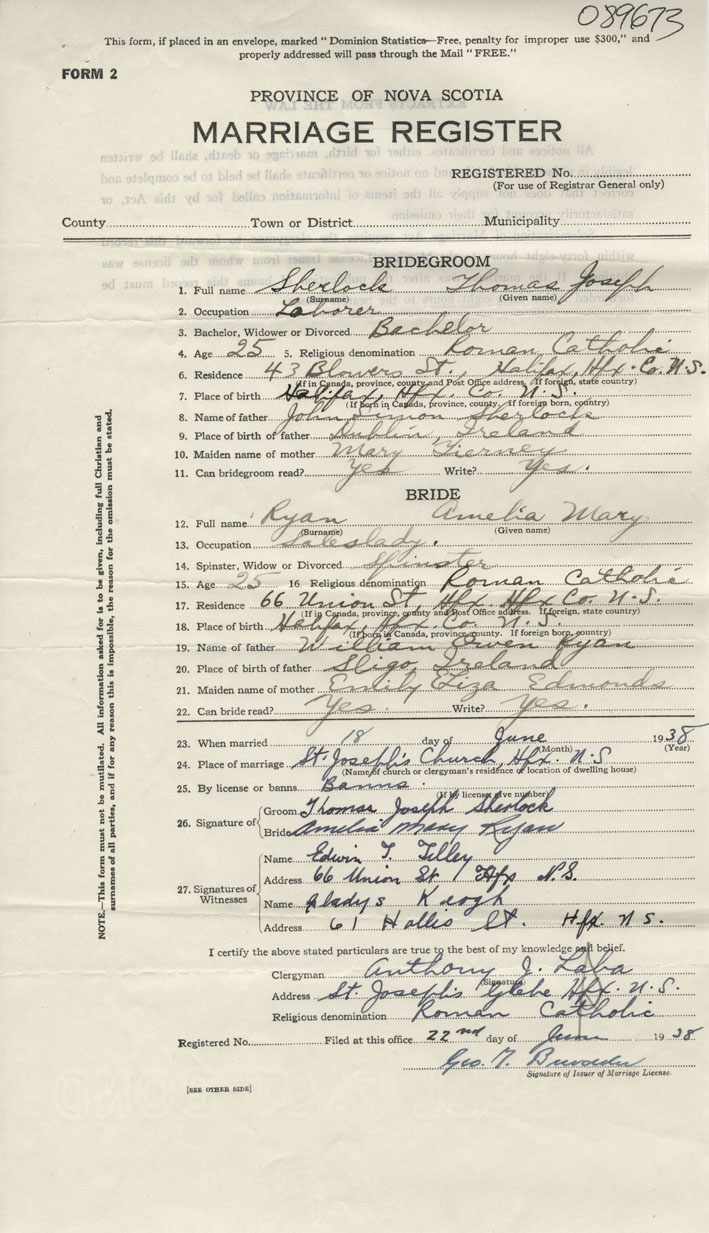 089673
This form, if placed in an envelope, marked "Dominion Statistics—Free, penalty for improper use $300," and
properly addressed will pass through the Mail "FREE."
FORM 2
PROVINCE OF NOVA SCOTIA
MARRIAGE REGISTER
REGISTERED No.
(For use of Registrar General only)
County Town or District Municipality
BRIDEGROOM
1. Full name Sherlock Thomas Joseph
(Surname) (Given name)
2. Occupation Laborer
3. Bachelor, Widower or Divorced Bachelor
4. Age 25 5. Religious denomination Roman Catholic
6. Residence 43 Blowers St., Halifax, Hfx. Co. N.S.
(If in Canada, province, county and Post Office address. If foreign, state country)
7. Place of birth Halifax, Hfx. Co. N.S.
(If born in Canada, province, county. If foreign born, country)
8. Name of father John Simon Sherlock
9. Place of birth of father Dublin, Ireland
10. Maiden name of mother Mary Tierney
11. Can bridegroom read? Yes Write? Yes.
BRIDE
12. Full name Ryan Amelia Mary
(Surname) (Given name)
13. Occupation Saleslady.
14. Spinster, Widow or Divorced Spinster
15. Age 25 16. Religious denomination Roman Catholic
17. Residence 66 Union St, Hfx Hfx Co. N.S.
(If in Canada, province, county and Post Office address. If foreign, state country)
18. Place of birth Halifax, Hfx. Co. N.S.
(If born in Canada, province, county. If foreign born, country)
19. Name of father William Owen Ryan
20. Place of birth of father Sligo, Ireland
21. Maiden name of mother Emily Eliza Edmonds
22. Can bride read? Yes. Write? Yes.
23. When married 18 day of June 1938
(Month) (Year)
24. Place of marriage St. Joseph's Church, Hfx. N.S
(Name of church or clergyman's residence or location of dwelling house)
25. By license or banns Banns.
(If by license give number)
26. Signature of Groom Thomas Joseph Sherlock
Bride Amelia Mary Ryan
27. Signatures of Witnesses
Name Edwin T. Tilley
Address 66 Union St Hfx N.S.
Name Gladys Keogh
Address 61 Hollis St. Hfx. N S.
I certify the above stated particulars are true to the best of my knowledge and belief.
Clergyman Anthony J. Laba
(Signature)
Address St. Joseph's Glebe Hfx. N.S.
Religious denomination Roman Catholic
Registered No. Filed at this office 22nd day of June 1938
Geo. T.
Signature of Issuer of Marriage License.
[SEE OTHER SIDE]
NOTE.—This form must not be mutilated. All information asked for is to be given, including full Christian and
surnames of all parties, and if for any reason this is impossible, the reason for the omission must be stated.